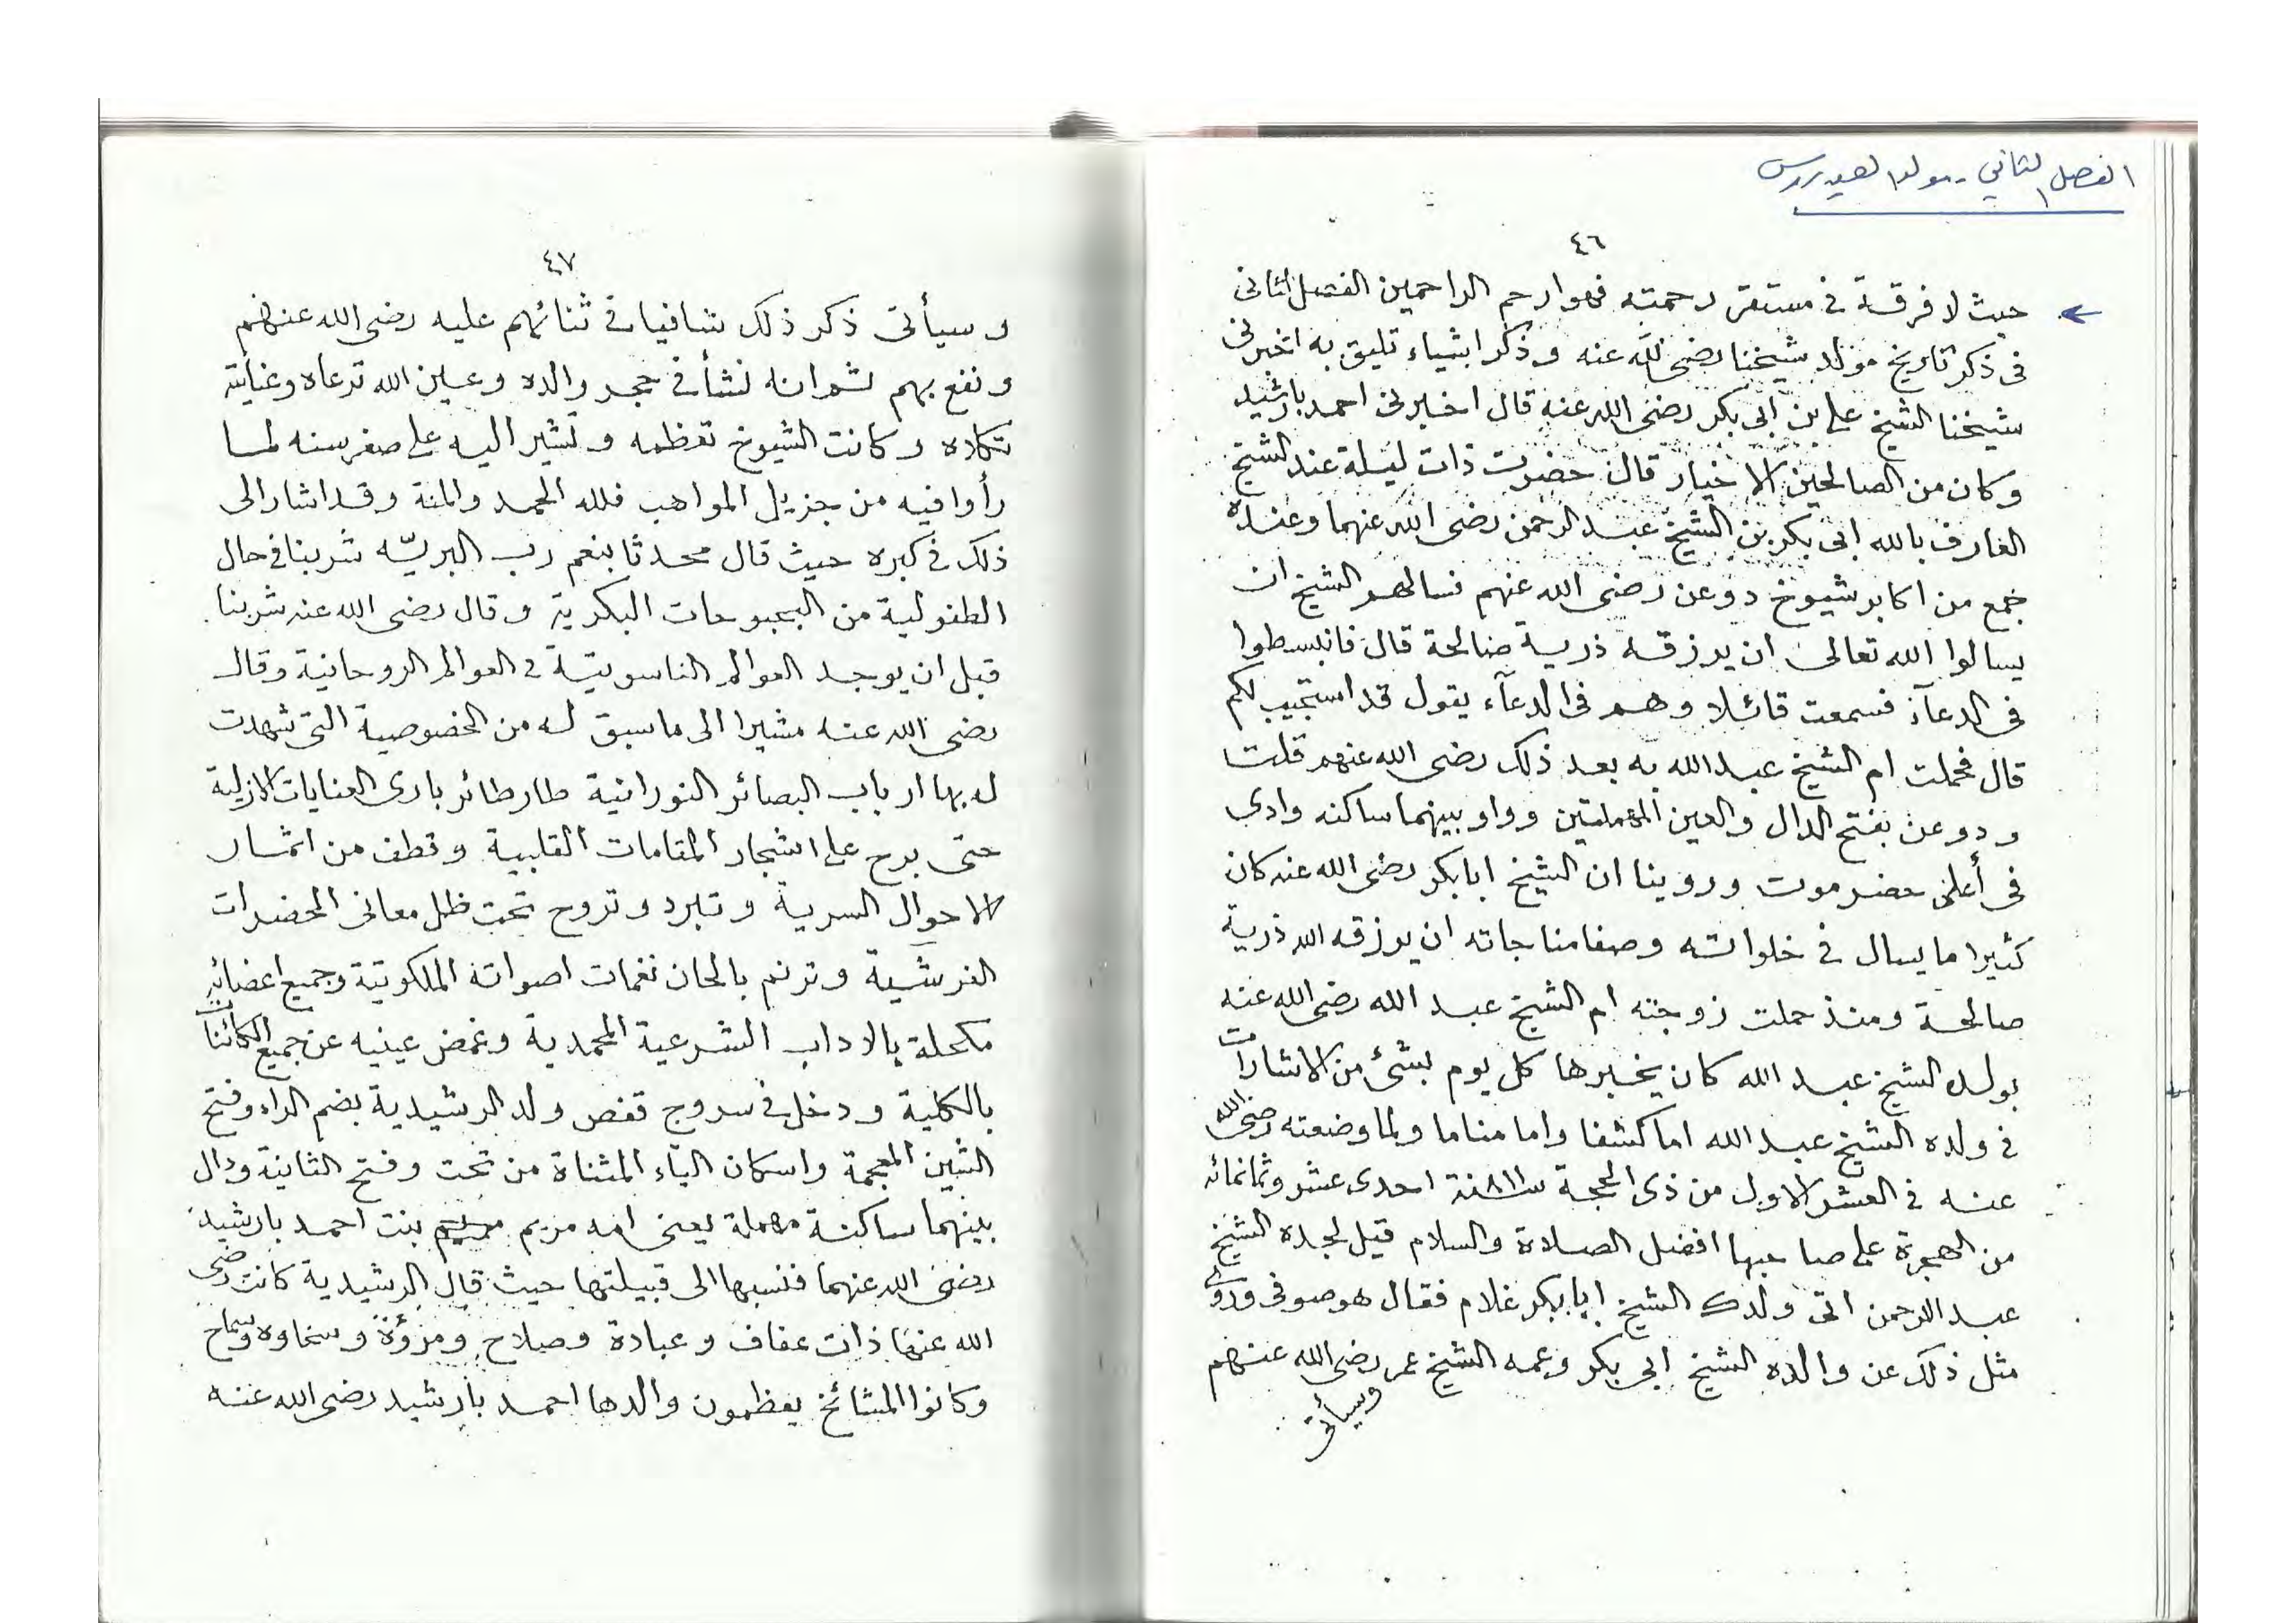 الفصل الثاني - مولد العيدروس
٤٦
حيث لا فرقة في مستقر رحمته فهو ارحم الراحمين الفصل الثانى
فى ذكر تاريخ مولد شيخنا رضى الله عنه وذكر اشياء تليق به اخبرنى
شيخنا الشيخ على بن ابى بكر رضى الله عنه قال اخبرنى احمد بارشيد
وكان من الصالحين الاخيار قال حضرت ذات ليلة عند الشيخ
العارف بالله ابى بكر بن الشيخ عبد الرحمن رضى الله عنهما وعنده
جمع من اكابر شيوخ دوعن رضى الله عنهم فسالهم الشيخ ان
يسالوا الله تعالى ان يرزقه ذرية صالحة قال فانبسطوا
فى الدعآء فسمعت قائلا وهم فى الدعآء يقول قد استجيب لكم
قال فحملت ام الشيخ عبد الله به بعد ذلك رضى الله عنهم قلت
ودوعن بفتح الدال والعين المهملتين وواو بينهما ساكنه وادى
فى أعلى حضرموت وروينا ان الشيخ ابابكر رضى الله عنه كان
كثيرا ما يسال فى خلواته وصفا مناجاته ان يرزقه الله ذرية
صالحة ومنذ حملت زوجته ام الشيخ عبد الله رضى الله عنه
بولده الشيخ عبد الله كان يخبرها كل يوم بشئ من الاشارات
فى ولده الشيخ عبد الله اما كشفا واما مناما ولما وضعته رضى الله
عنه فى العشر الاول من ذى الحجة سنة ٨١١ احدى عشر وثمانمائه
من الهجرة على صاحبها افضل الصلاة والسلام قيل لجده الشيخ
عبد الرحمن اتى ولدك الشيخ ابابكر غلام فقال هو صوفى وروى
مثل ذلك عن والده الشيخ ابى بكر وعمه الشيخ عمر رضى الله عنهم
وسيأتى
٤٧
وسيأتى ذكر ذلك شافيا فى ثنائهم عليه رضى الله عنهم
ونفع بهم ثم انه نشأ فى حجر والده وعين الله ترعاه وعنايته
تكلاه وكانت الشيوخ تعظمه وتشير اليه على صغر سنه لما
رأوا فيه من جزيل المواهب فلله الحمد والمنة وقد اشار الى
ذلك فى كبره حيث قال محدثا بنعم رب البريّه شربنا فى حال
الطفولية من البحبوحات البكرية وقال رضى الله عنه شربنا
قبل ان يوجد العوالم الناسوتية فى العوالم الروحانية وقال
رضى الله عنه مشيرا الى ما سبق له من الخصوصية التى شهدت
له بها ارباب البصائر النورانية طار طائر بارى العنايات الازلية
حتى برح على اشجار المقامات القلبية وقطف من اثمار
الاحوال السرية وتبرد وتروح تحت ظل معانى الحضرات
العرشية وترنم بالحان نغمات اصواته الملكوتية وجميع اعضائه
مكحلة بالاداب الشرعية المحمدية وغمض عينيه عن جميع الكائنات
بالكلية ودخل فى سروج قفص ولد الرشيدية بضم الرآء وفتح
الشين المعجمة واسكان اليآء المثناة من تحت وفتح الثانية ودال
بينهما ساكنة مهملة يعنى امه مريم بنت احمد بارشيد
رضى الله عنهما فنسبها الى قبيلتها حيث قال الرشيدية كانت رضى
الله عنها ذات عفاف وعبادة وصلاح ومروءة وسخاوه وسماح
وكانوا المشائخ يعظمون والدها احمد بارشيد رضى الله عنه